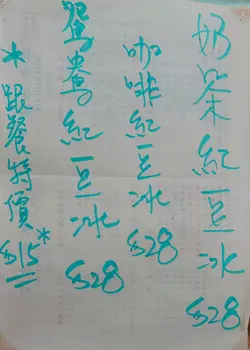 奶茶紅豆冰 $28
咖啡紅豆冰 $28
鴛鴦紅豆冰 $28
*跟餐特價* $15